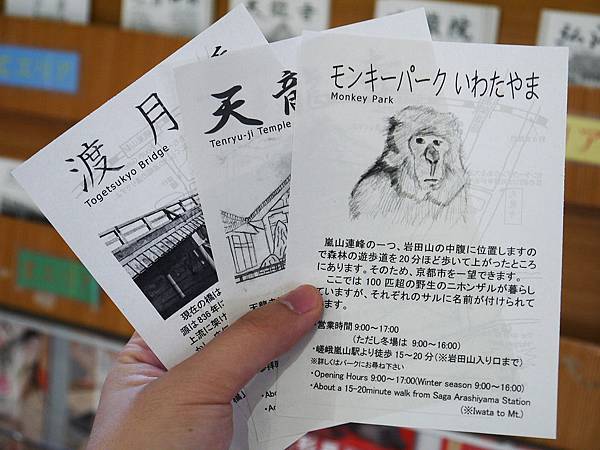 渡月
Togetsukyo Bridge
現在の橋は
源は836年に
上流に架け
天龍
Tenryu-ji Temple
モンキーパーク いわたやま
Monkey Park
嵐山連峰の一つ、岩田山の中腹に位置しますの
で森林の遊歩道を20分ほど歩いて上がったところ
にあります。そのため、京都市を一望できます。
ここでは 100 匹超の野生のニホンザルが暮らし
ていますが、それぞれのサルに名前が付けられて
います。
・営業時間 9:00～17:00
(ただし冬場は 9:00～16:00)
・嵯峨嵐山駅より徒歩 15～20 分(※岩田山入り口まで)
※詳しくはパークにお尋ね下さい
・Opening Hours 9:00～17:00(Winter season 9:00～16:00)
・About a 15-20minute walk from Saga Arashiyama Station
(※Iwata to Mt.)